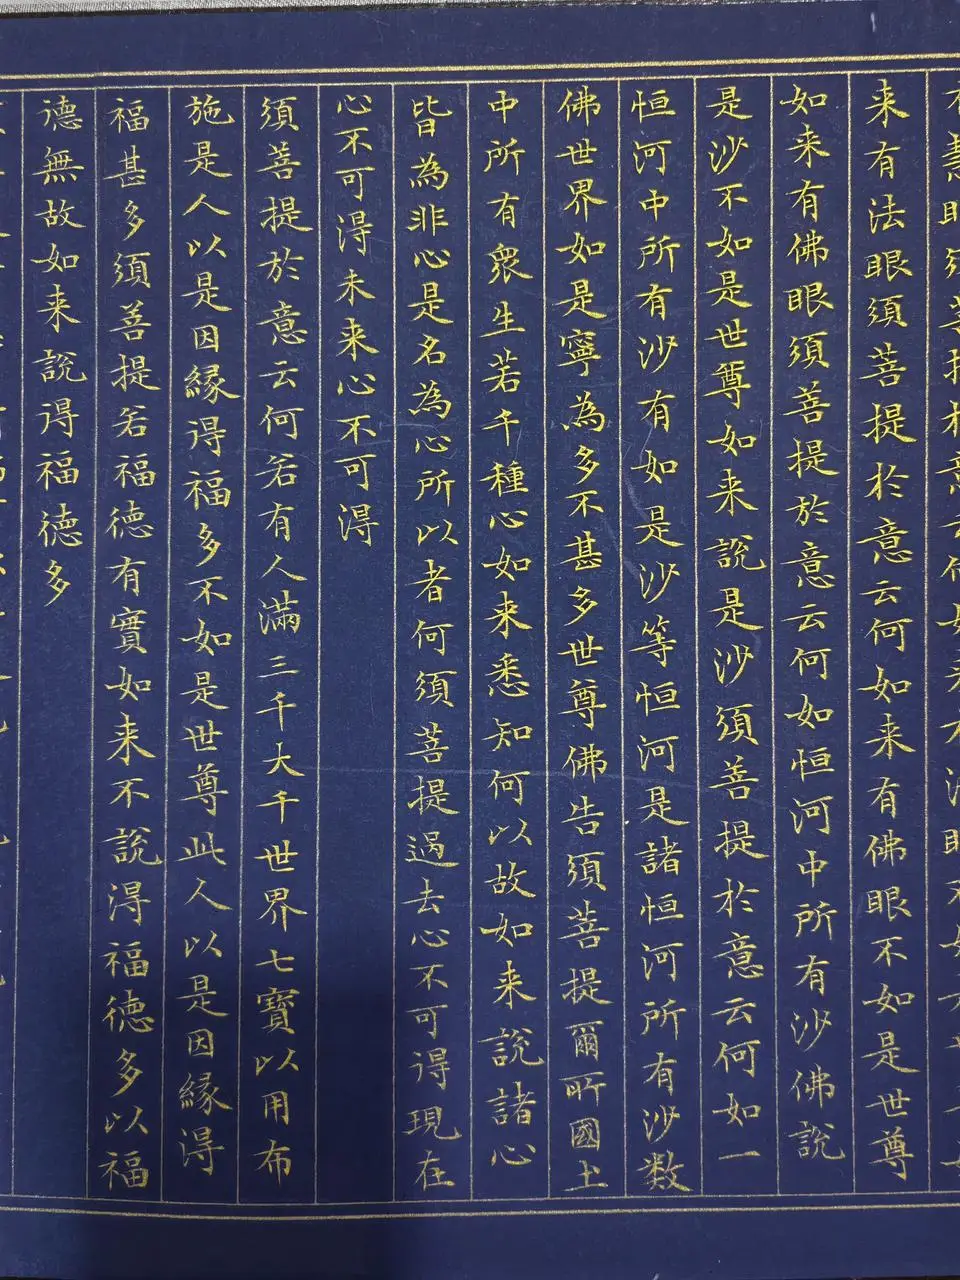 来有法眼須菩提於意云何如来有佛眼不如是世尊
如来有佛眼須菩提於意云何如恒河中所有沙佛說
是沙不如是世尊如来說是沙須菩提於意云何如一
恒河中所有沙有如是沙等恒河是諸恒河所有沙数
佛世界如是寧為多不甚多世尊佛告須菩提爾所國土
中所有衆生若干種心如来悉知何以故如来說諸心
皆為非心是名為心所以者何須菩提過去心不可得現在
心不可得未来心不可得
須菩提於意云何若有人滿三千大千世界七寶以用布
施是人以是因縁得福多不如是世尊此人以是因縁得
福甚多須菩提若福德有實如来不說得福德多以福
德無故如来說得福德多